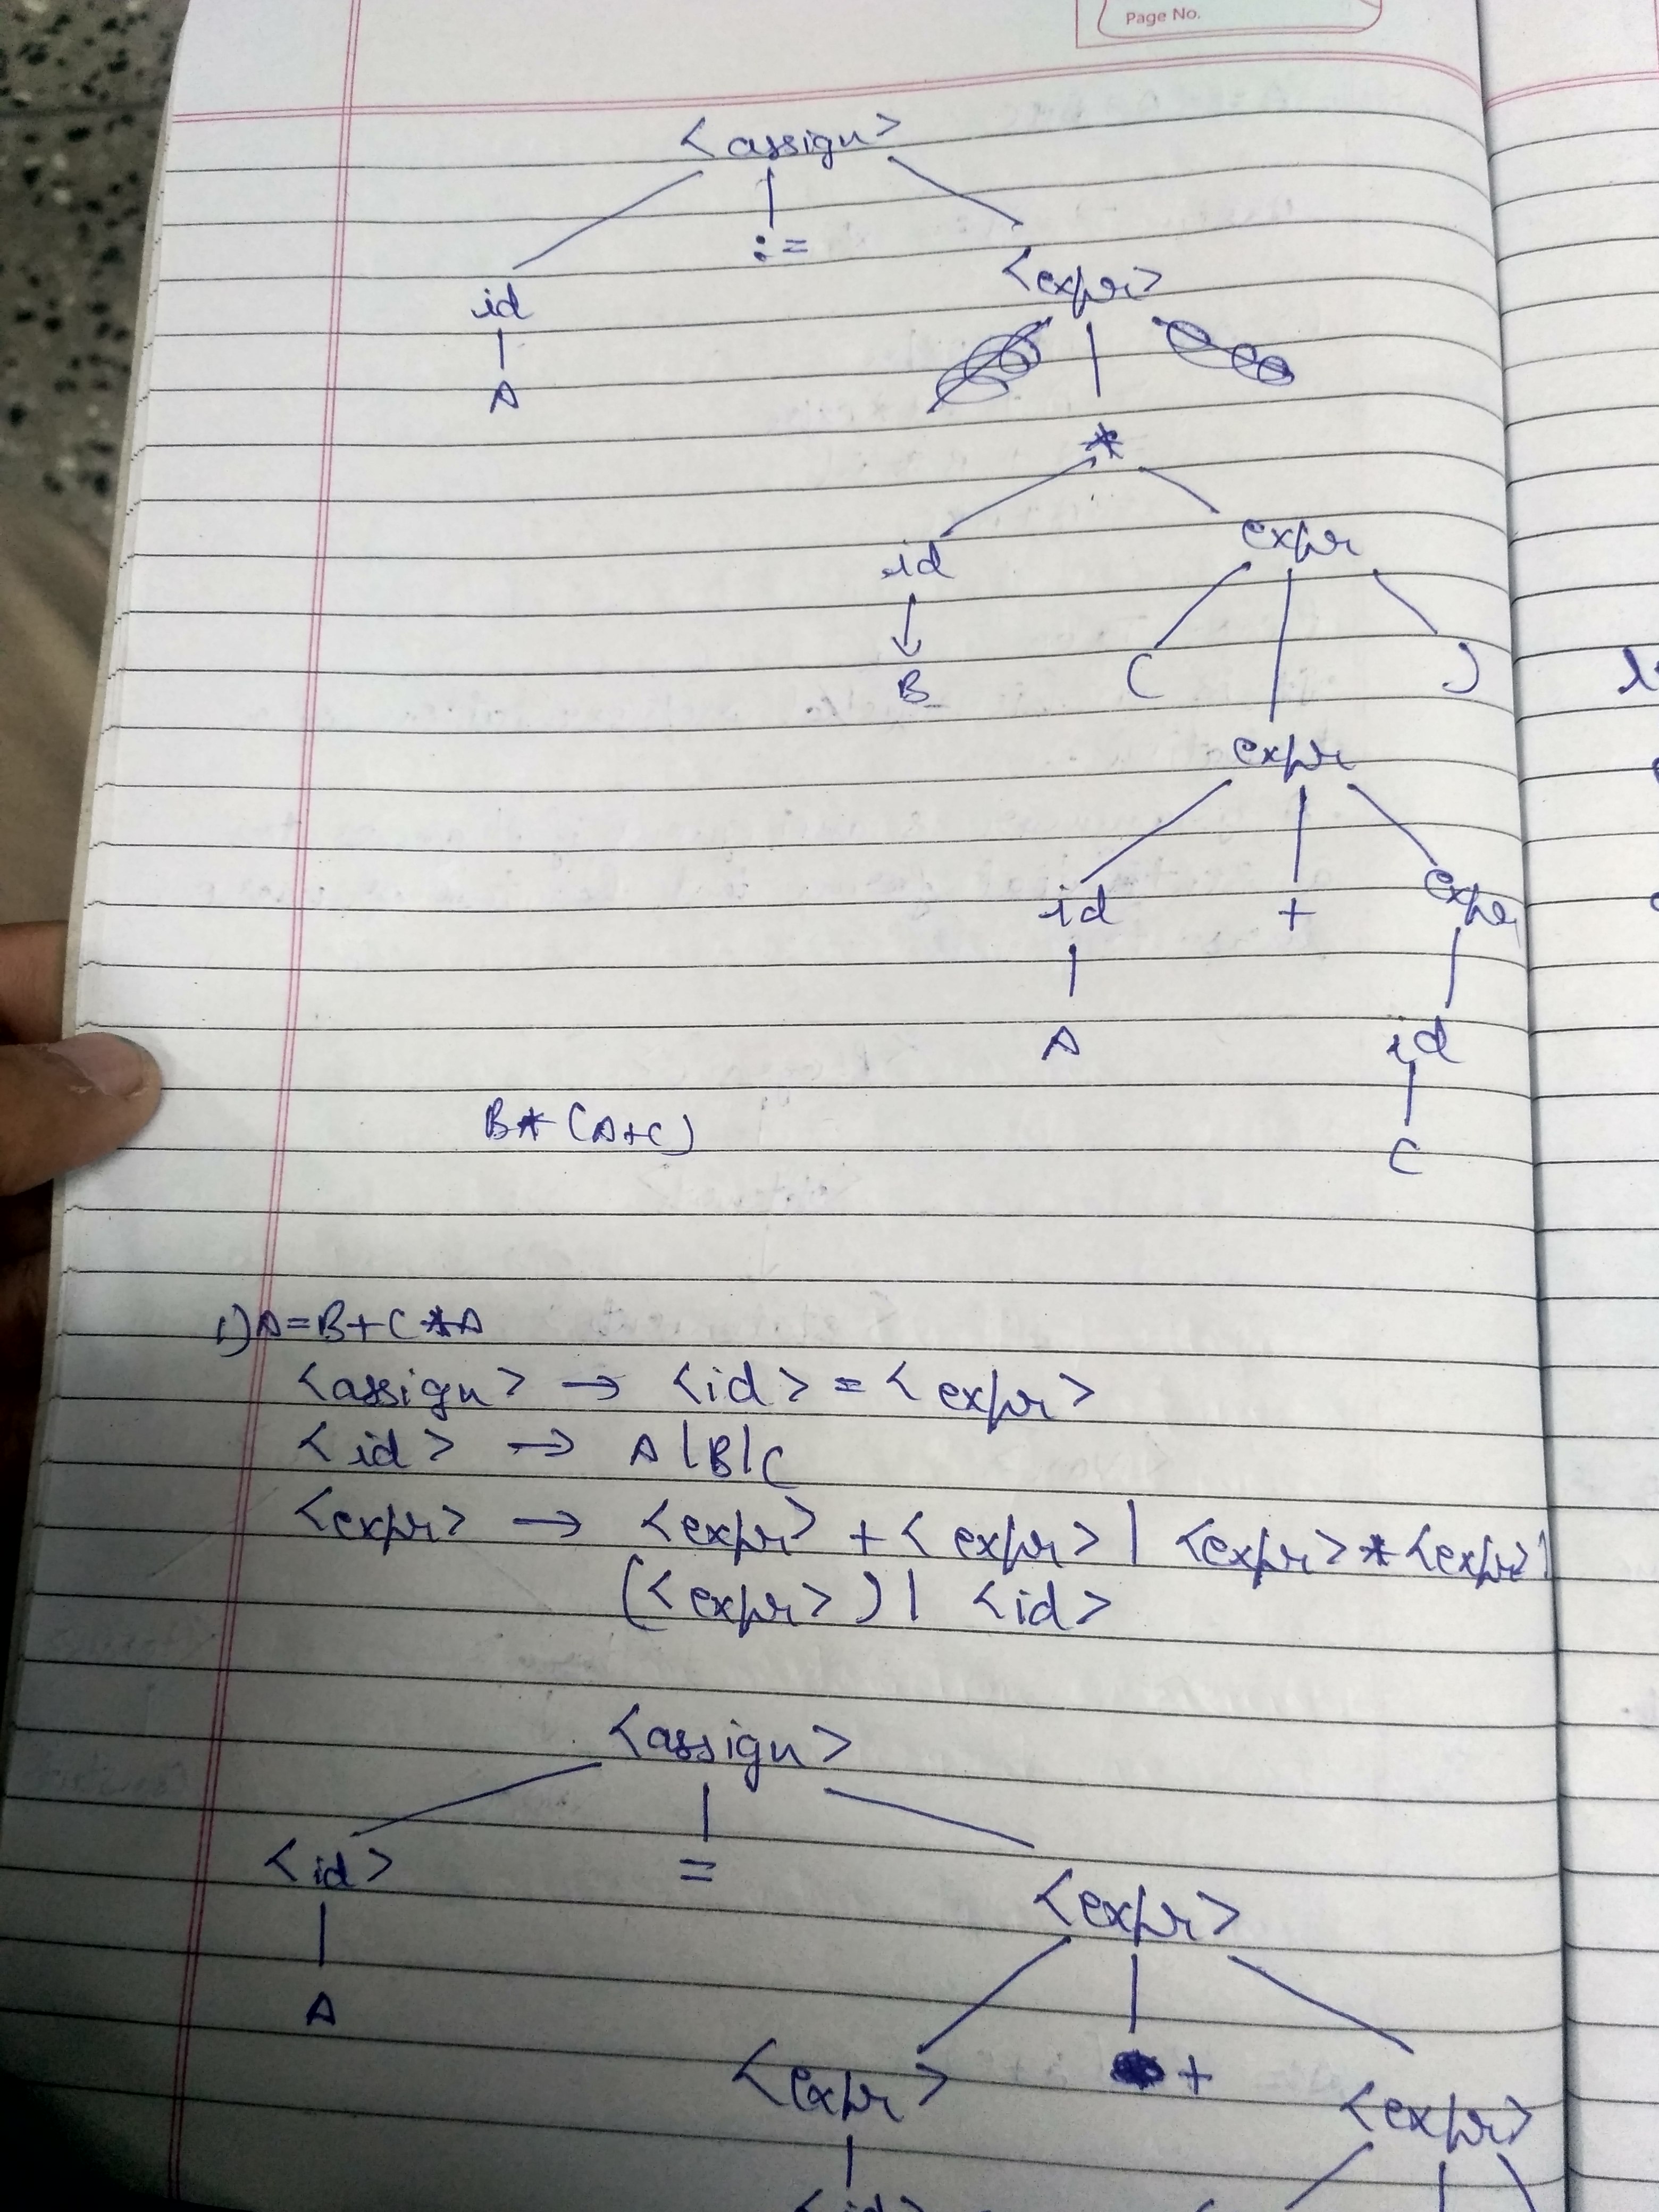 Page No.
<assign>
:=
id
<expr>
A
*
id
expr
B
( )
expr
id + expr
A
id
C
B*(A+C)
1) A=B+C*A
<assign> → <id> = <expr>
<id> → A|B|C
<expr> → <expr> + <expr> | <expr> * <expr> |
(<expr>) | <id>
<assign>
<id> = <expr>
A
<expr> + <expr>